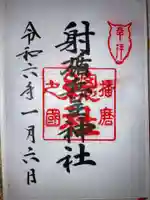 射楯兵主神社
令和六年一月六日
播磨
總社
之國